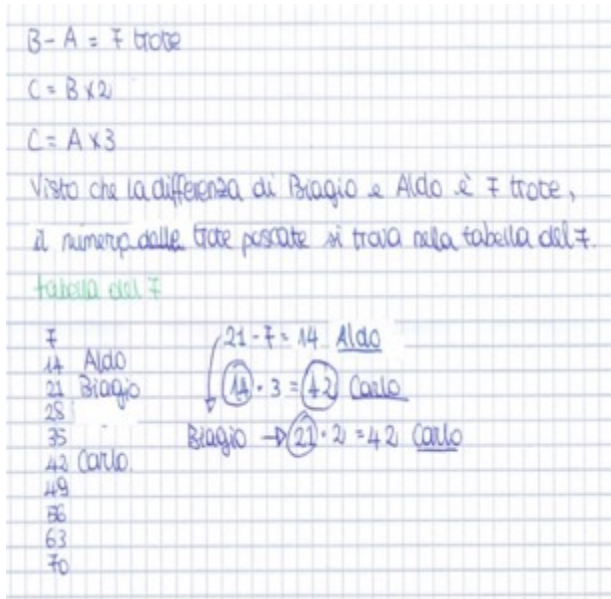 B - A = 7 trote
C = B x 2
C = A x 3
Visto che la differenza di Biagio e Aldo è 7 trote,
il numero delle trote pescate si trova nella tabella del 7.
tabella del 7
7
14 Aldo
21 Biagio
28
35
42 Carlo
49
56
63
70
21 - 7 = 14 Aldo
14 · 3 = 42 Carlo
Biagio → 21 · 2 = 42 Carlo